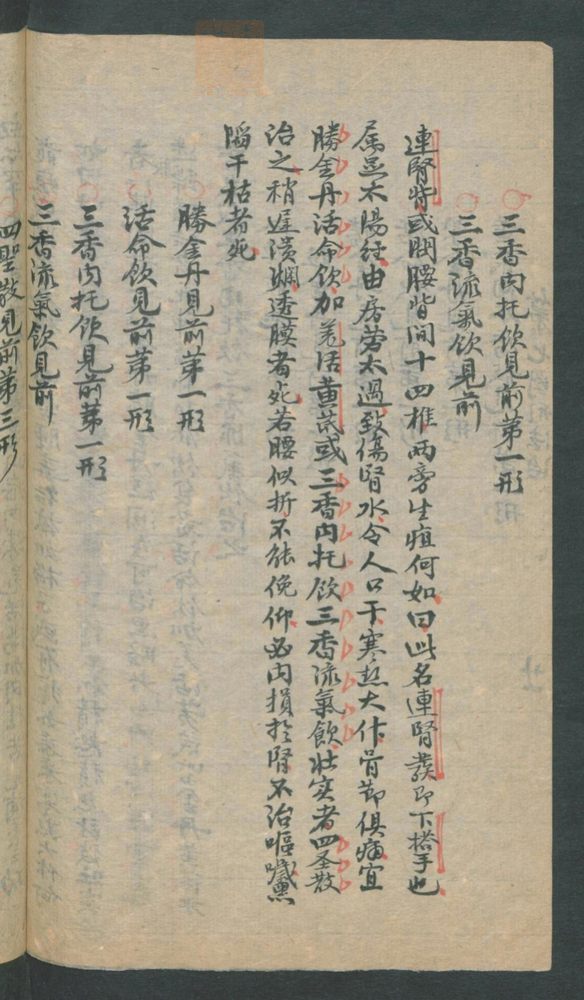 三香內托飲見前第一形
三香流氣飲見前
連腎背或問腰背间十四椎兩旁生疽何如曰此名連腎發即下搭手也
属足太陽経由房劳太過致傷腎水令人口干寒热大作骨節俱痛宜
勝金丹活命飲加羌活黄芪或三香內托飲三香流氣飲壯实者四圣散
治之稍遲潰烂透膜者死若腰似折不能俛仰必內損於腎不治嘔噦黑
陷干枯者死
勝金丹見前第一形
活命飲見前第一形
三香內托飲見前第一形
三香流氣飲見前
四聖散見前第三形